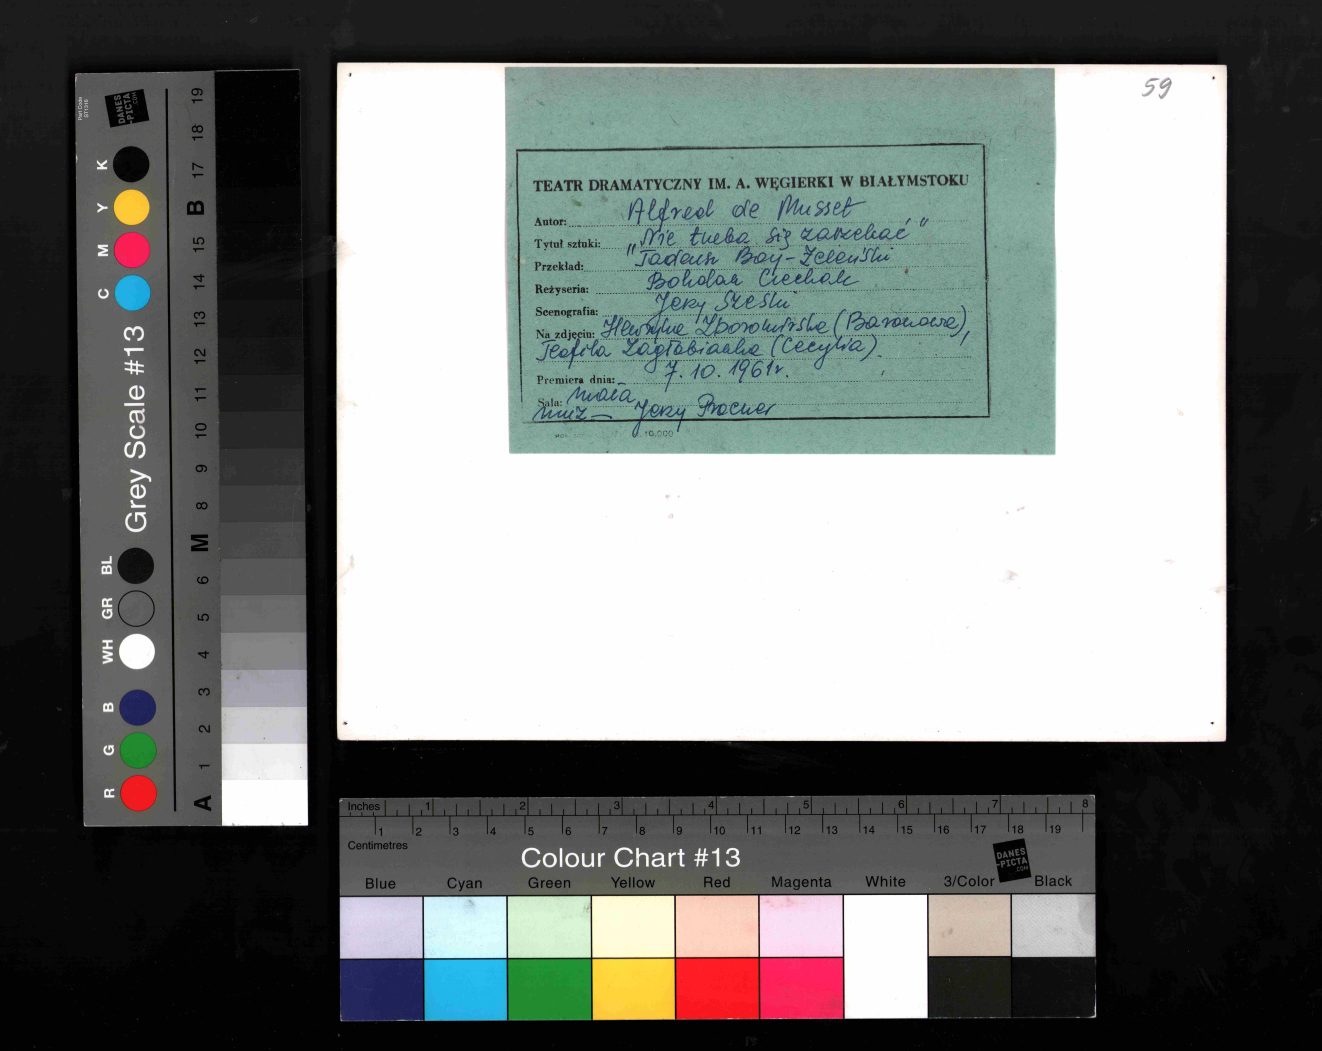 59
TEATR DRAMATYCZNY IM. A. WĘGIERKI W BIAŁYMSTOKU
Autor: Alfred de Musset
Tytuł sztuki: "Nie trzeba się zarzekać"
Przekład: Tadeusz Boy-Żeleński
Reżyseria: Bohdan Ciechak
Scenografia: Jerzy Szeski
Na zdjęciu: Zborowirska (Baronowa),
Teofila Zagłobianka (Cecylia).
Premiera dnia: 7. 10. 1961r.
Sala: mała
muz – Jerzy Procner
10.000
Part Code
ST1316
DANES
-PICTA
.COM
Grey Scale #13
R G B WH GR BL C M Y K
A 1 2 3 4 5 6 M 8 9 10 11 12 13 14 15 B 17 18 19
Inches 1 2 3 4 5 6 7 8
1 2 3 4 5 6 7 8 9 10 11 12 13 14 15 16 17 18 19
Centimetres
Colour Chart #13
DANES
-PICTA
.COM
Blue Cyan Green Yellow Red Magenta White 3/Color Black